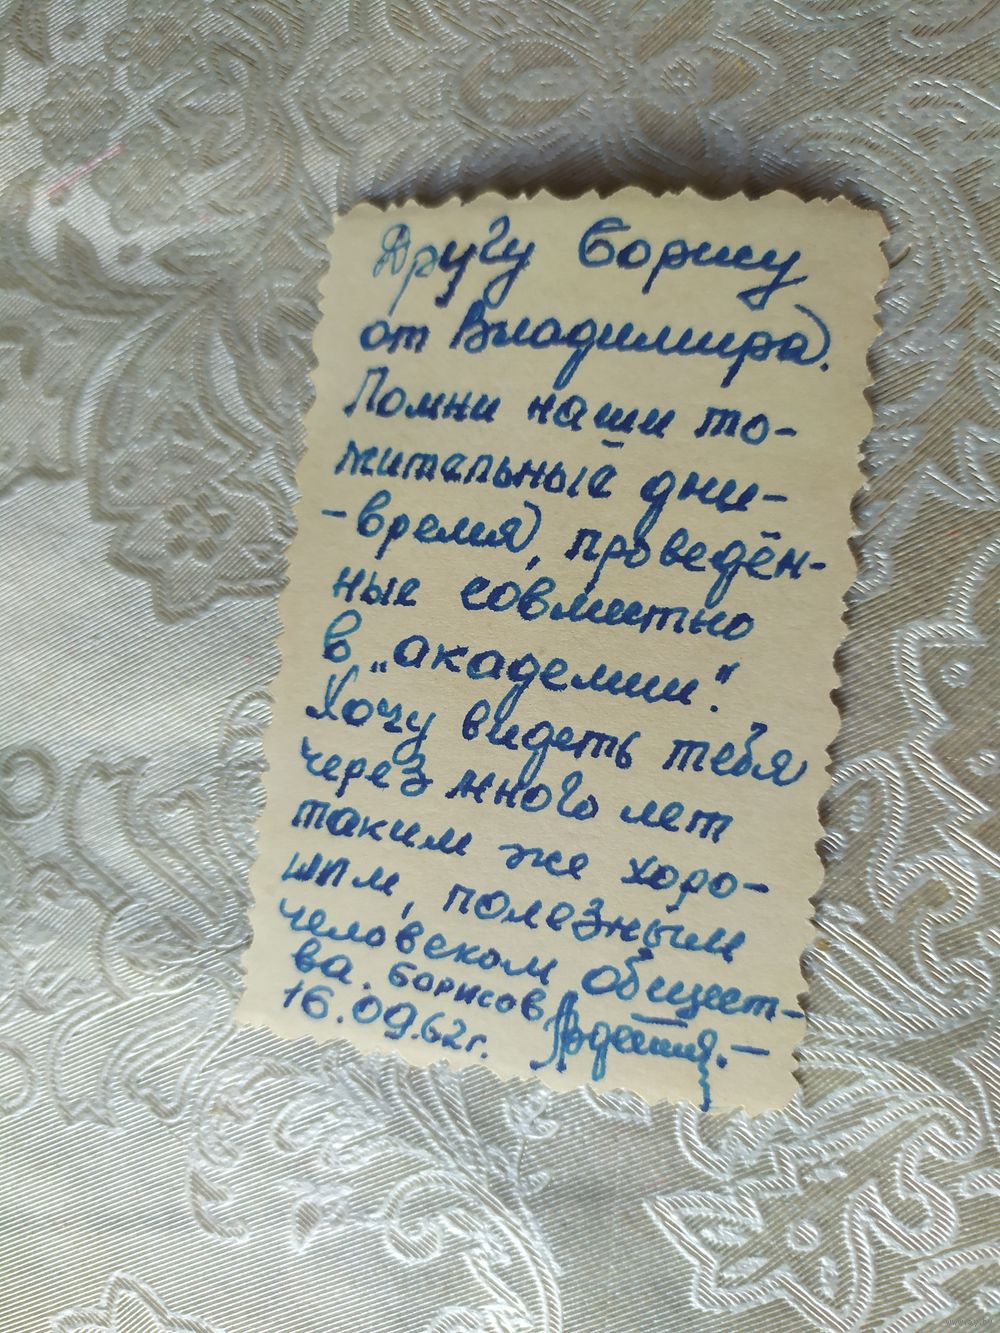 Другу Борису
от Владимира.
Помни наши то-
мительные дни-
-время, проведён-
ные совместно
в „академии".
Хочу видеть тебя
через много лет
таким же хоро-
шим, полезным
человеком общест-
ва. Борисов
16.09.62г.